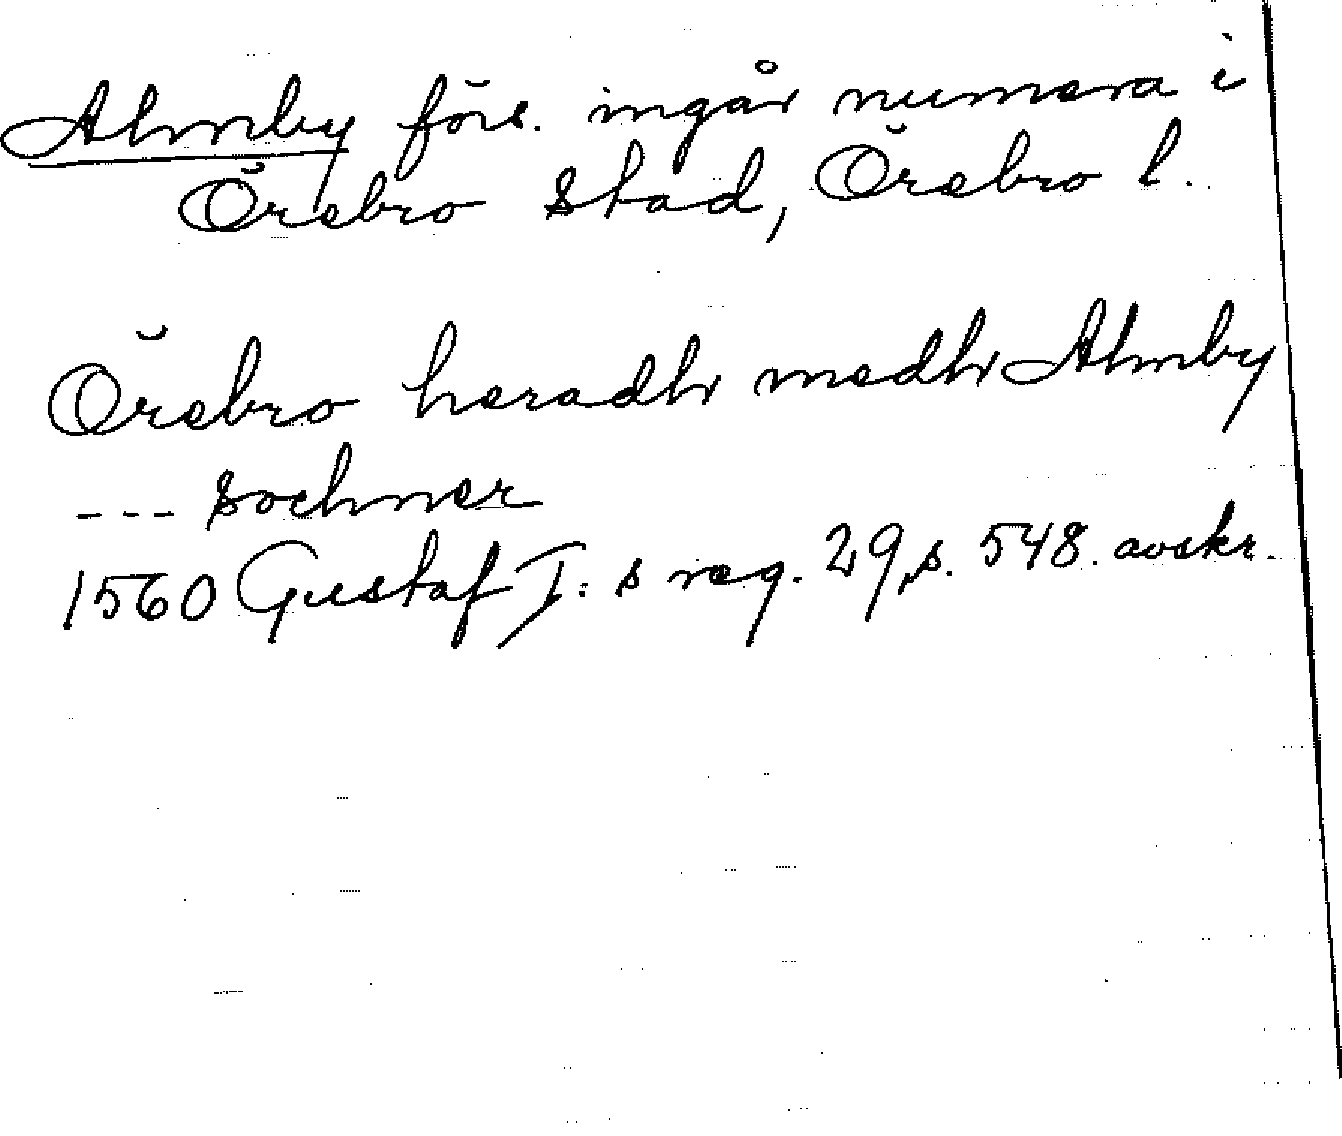 Almby förs. ingår numera i
Örebro stad, Örebro l.
Örebro heradh medh Almby
--- sochner
1560 Gustaf I:s reg. 29, s. 548. avskr.